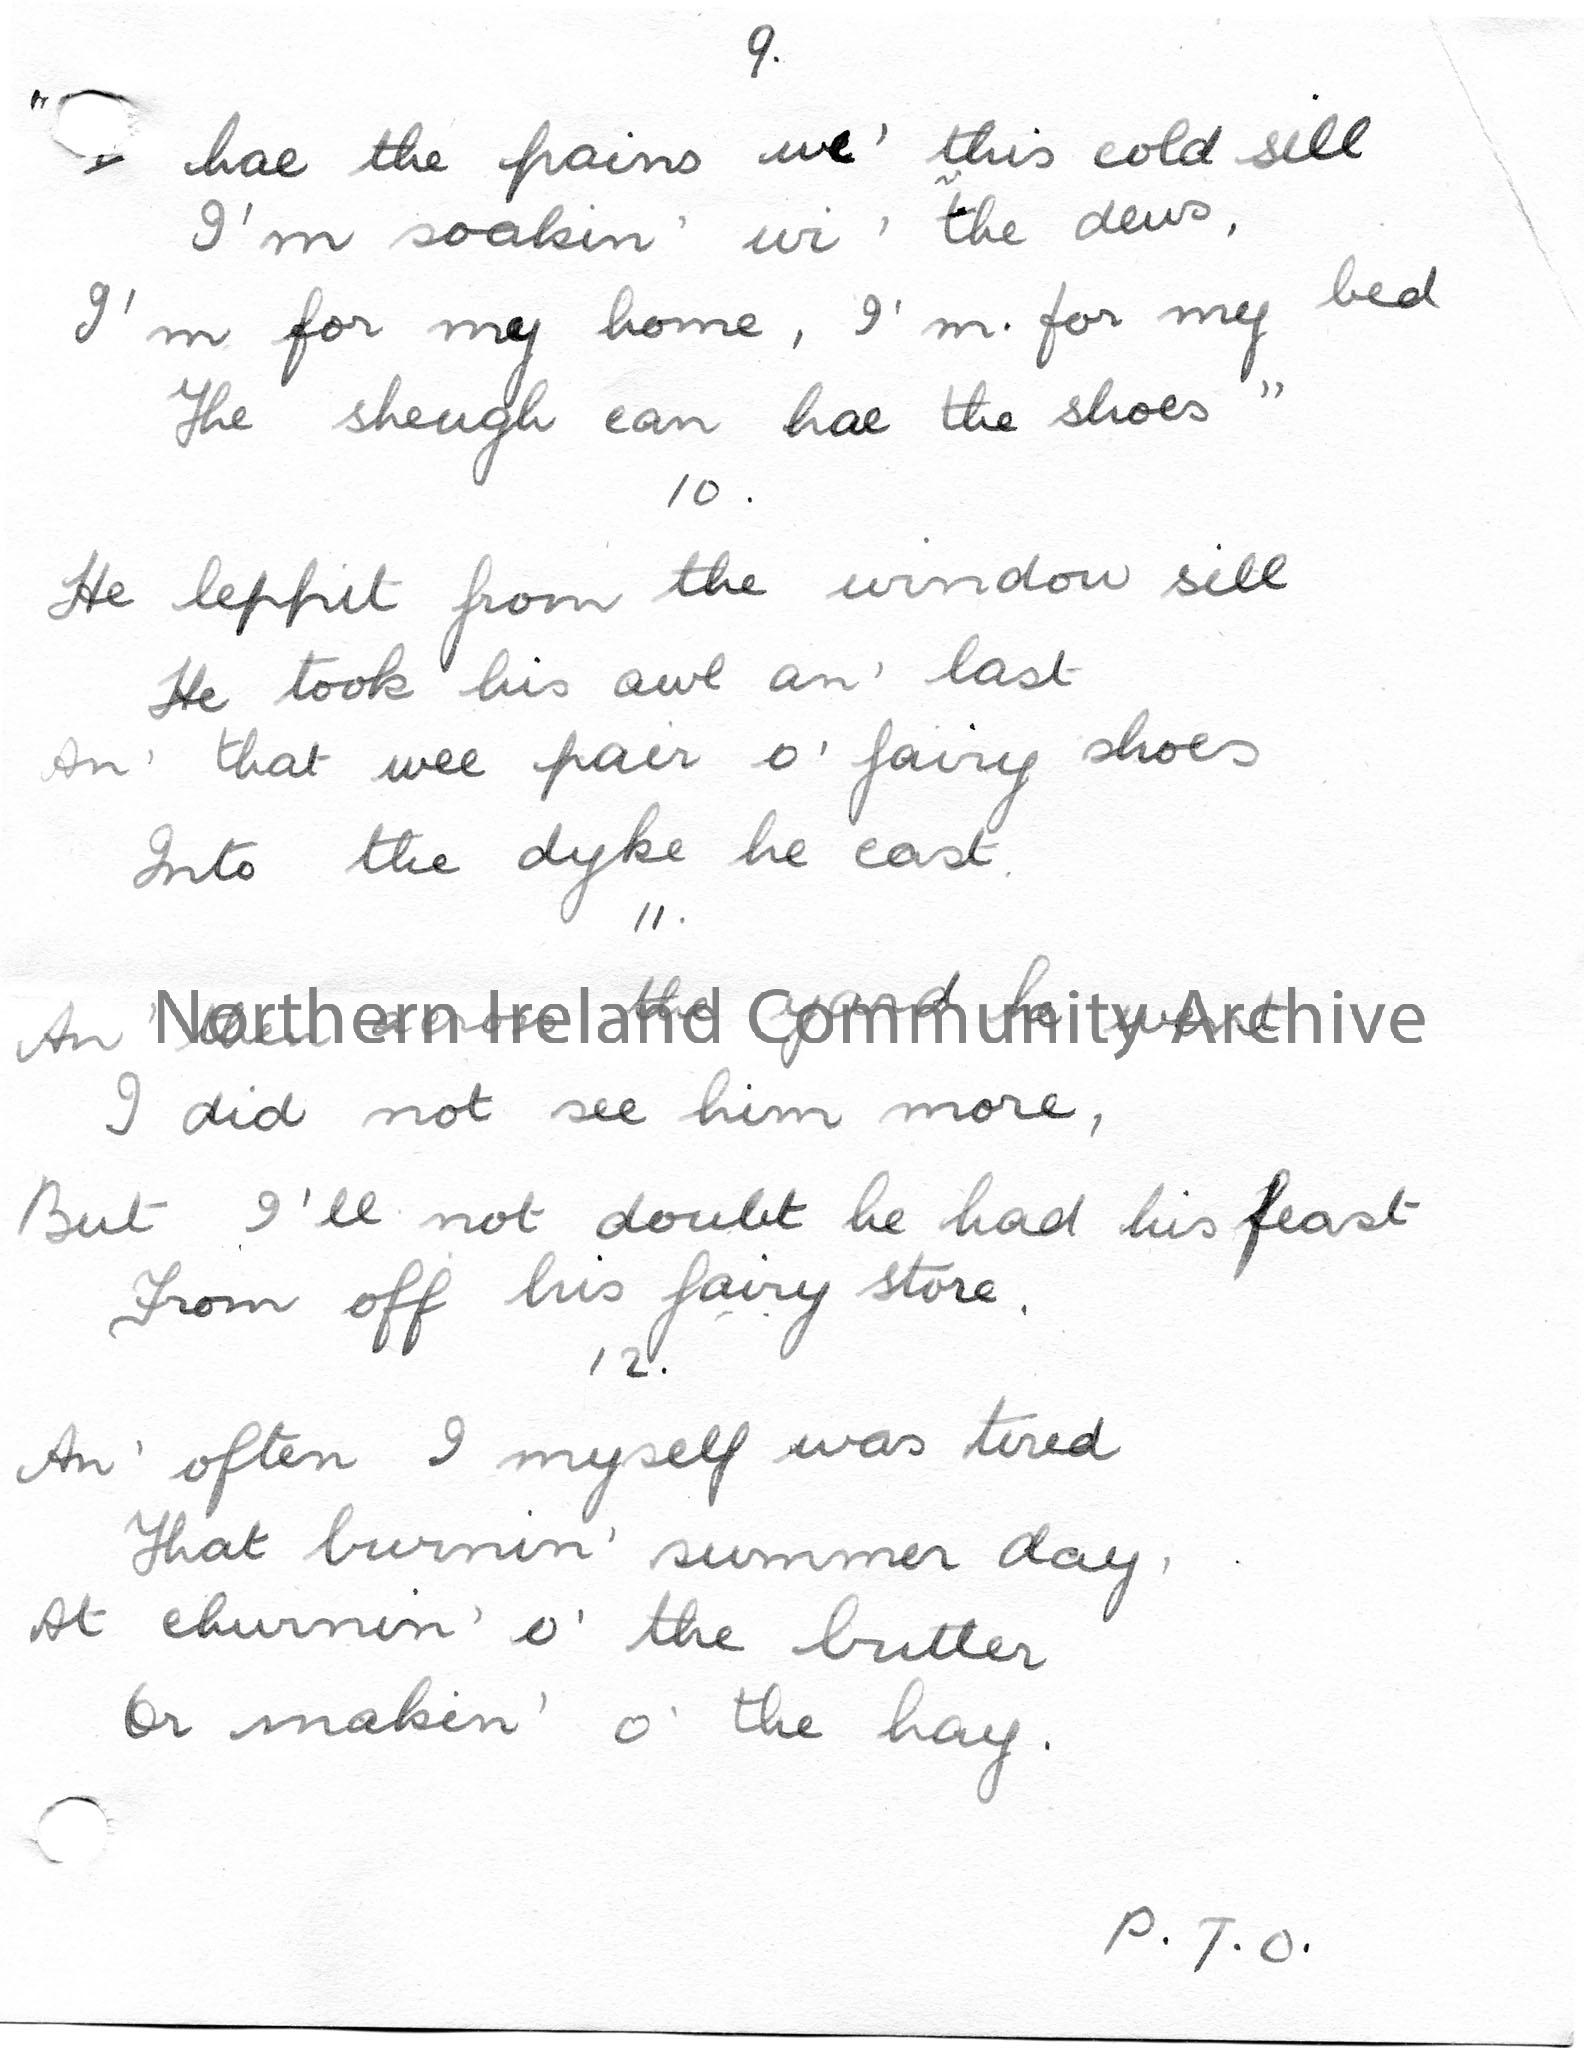 9.
"I hae the pains we' this cold sill
I'm soakin' wi' the dews,
I'm for my home, I'm. for my bed
The sheugh can hae the shoes"
10.
He leppit from the window sill
He took his awl an' last
An' that wee pair o' fairy shoes
Into the dyke he cast.
11.
An' then across the yard he went
Northern Ireland Community Archive
I did not see him more,
But I'll not doubt he had his feast
From off his fairy store.
12.
An' often I myself was tired
That burnin' summer day,
At churnin' o' the butter
Or makin' o' the hay.
P.T.O.